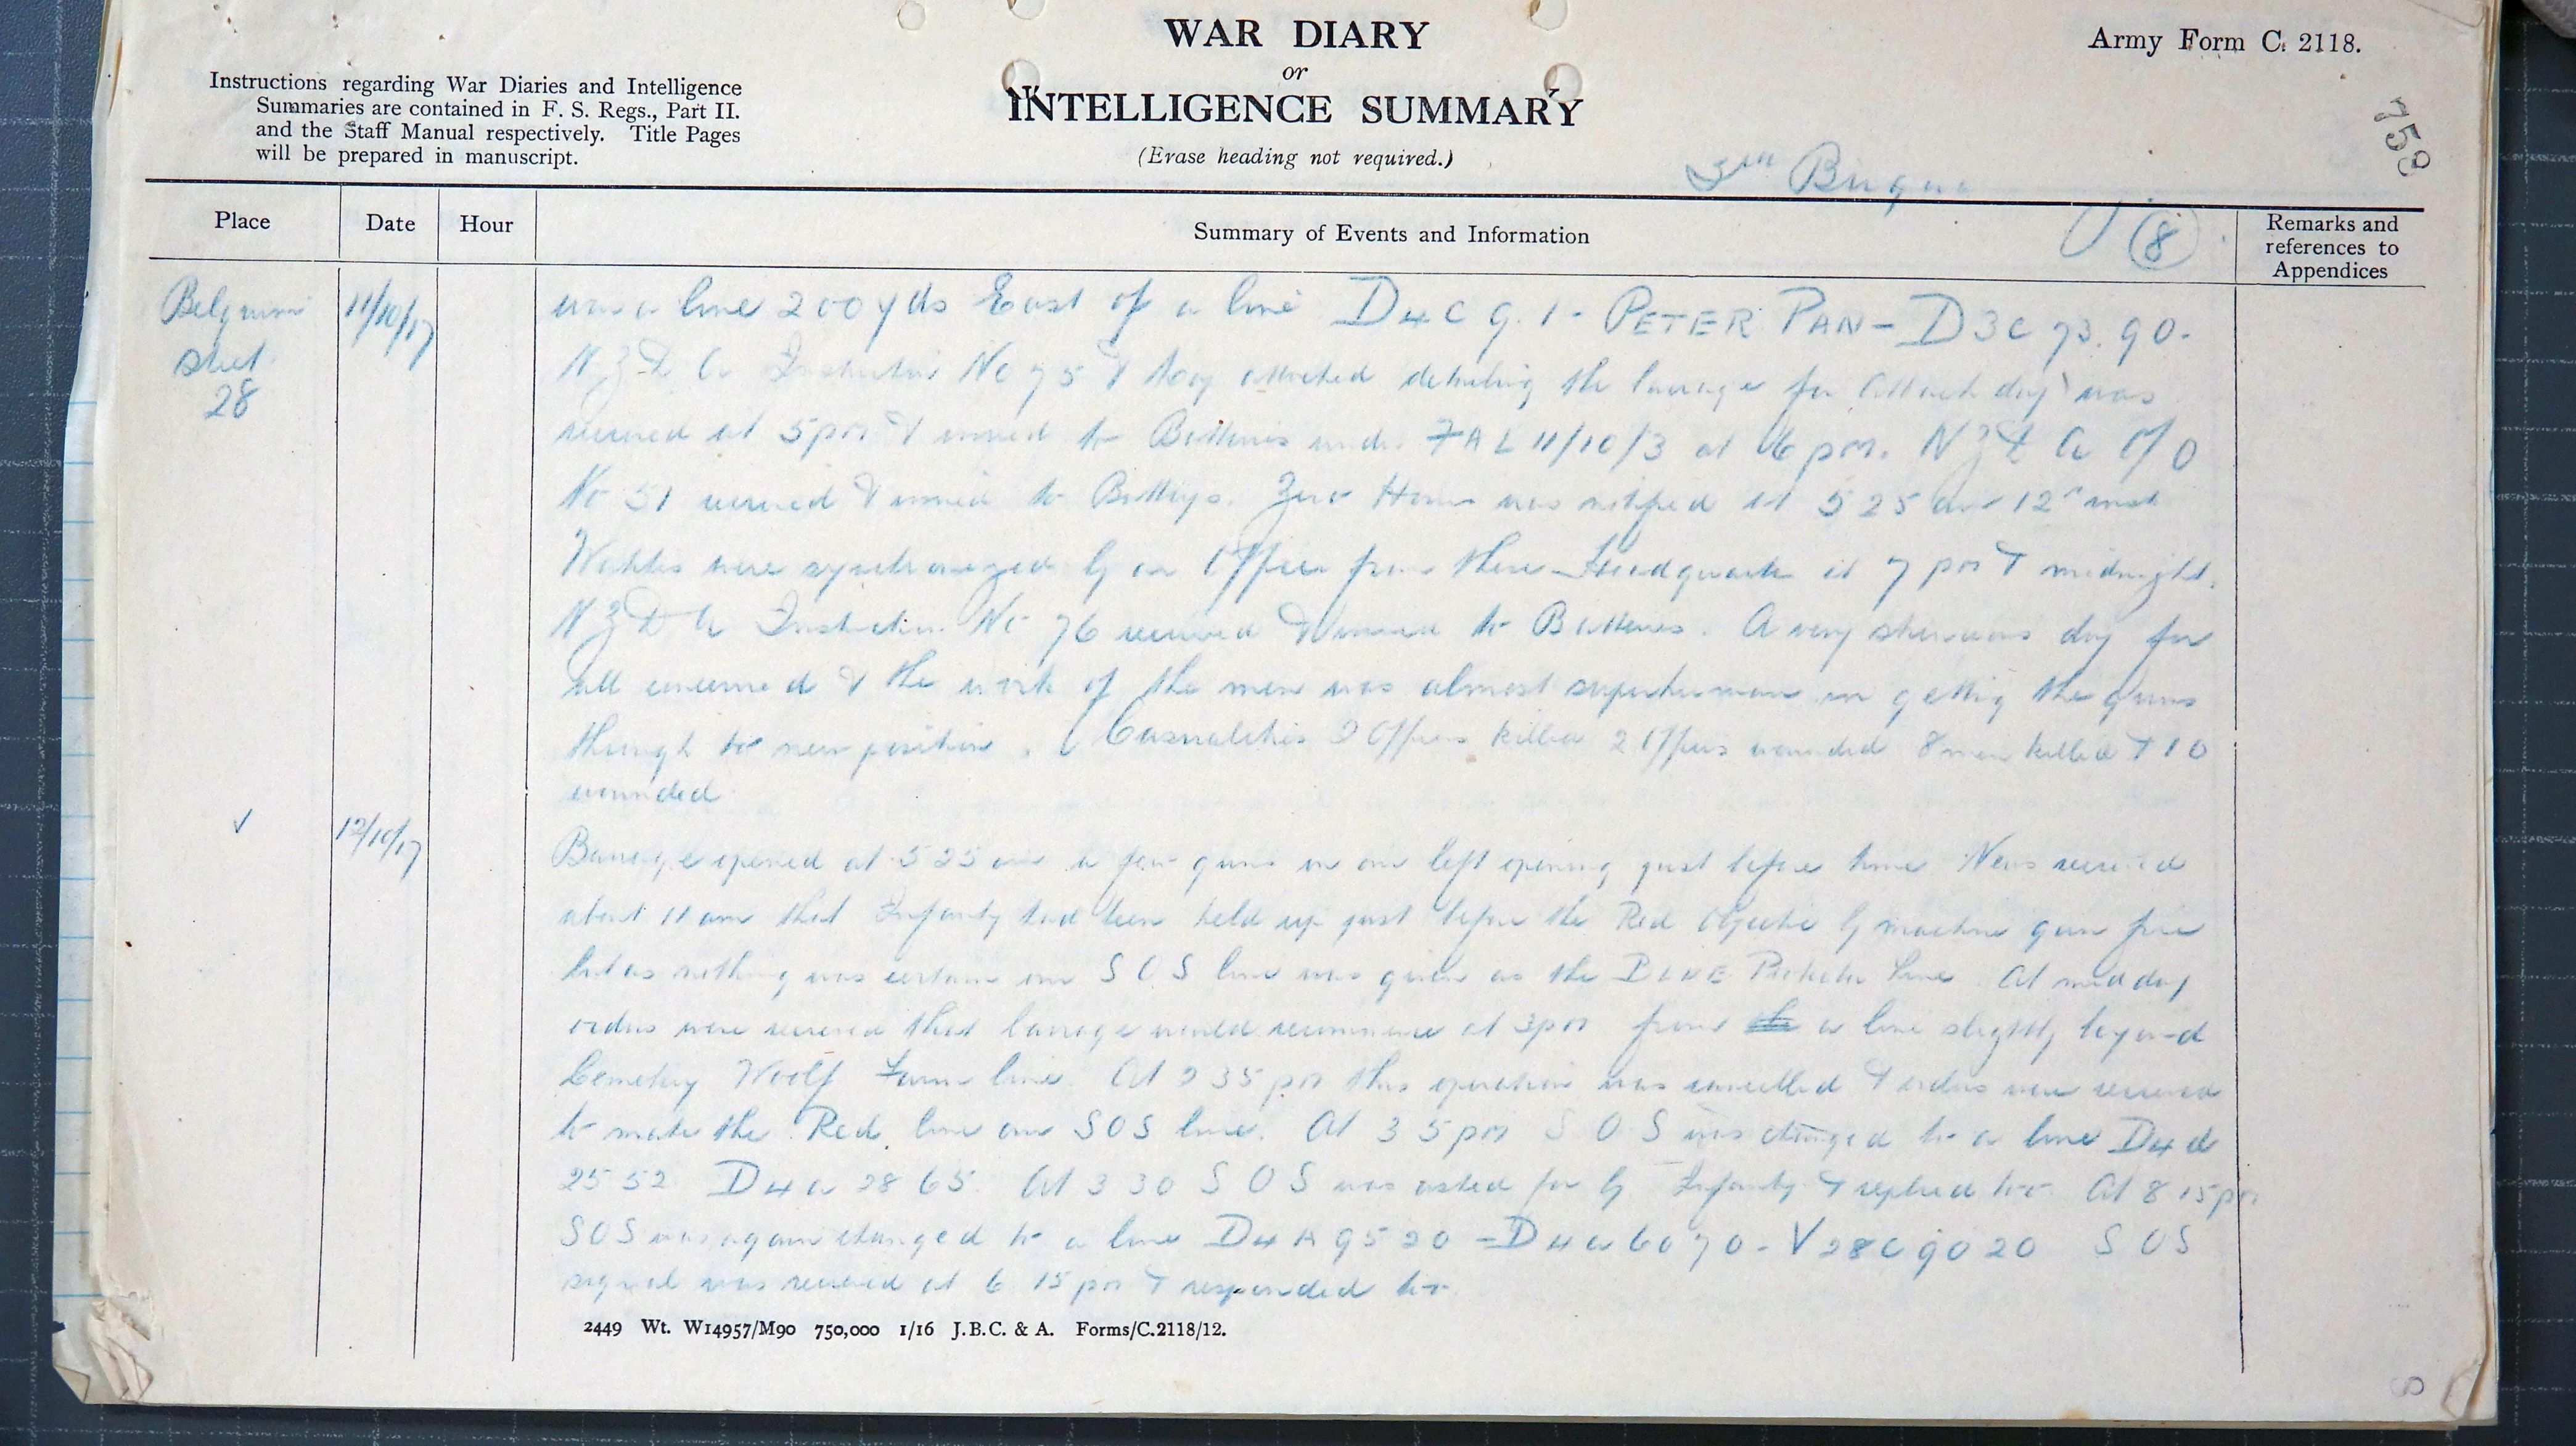 WAR DIARY
or
INTELLIGENCE SUMMARY
(Erase heading not required.)
Army Form C. 2118.
Instructions regarding War Diaries and Intelligence
Summaries are contained in F. S. Regs., Part II.
and the Staff Manual respectively. Title Pages
will be prepared in manuscript.
759
3rd Brigade
Place
Date
Hour
Summary of Events and Information
8
Remarks and
references to
Appendices
Belgium
Sheet
28
11/10/17
was a line 200 yds East of a line D4C 9.1 - PETER PAN - D3C 73.90.
N Z D A Instruction No 75 & map attached detailing the barrage for attack day was
received at 5 pm & issued to Batteries under FAL 11/10/3 at 6 pm. N Z D A O/O
No 51 received & issued to Batterys. Zero Hour was notified at 5 25 am 12th inst
Watches were synchronized by an Officer from these Headquarters at 7 pm & midnight.
N Z D A Instruction No 76 received & issued to Batteries. A very strenuous day for
all concerned & the work of the men was almost superhuman in getting the guns
through to new position. Casualities 2 Officers killed 2 Officers wounded 8 men killed & 10
wounded
12/10/17
Barrage opened at 5 25 am a few guns on our left opening just before time. News received
about 11 am that Infantry had been held up just before the Red Objective by machine gun fire
but as nothing was certain our S O S line was given as the BLUE Protective Line. At mid day
orders were received that barrage would recommence at 3 pm from a line slightly beyond
Cemetery Woolf Farm line. At 2 35 pm this operation was cancelled & orders were received
to make the Red line our SOS line. At 3 5 pm S O S was changed to a line D4d
25 52 D4a 28 65. At 3 30 S O S was asked for by Infantry & replied to. At 8 15 pm
SOS was again changed to a line D4A 95 20 - D4a 60 70 - V28C 90 20 SOS
signal was received at 6 15 pm & responded to.
2449 Wt. W14957/M90 750,000 1/16 J.B.C. & A. Forms/C.2118/12.
8